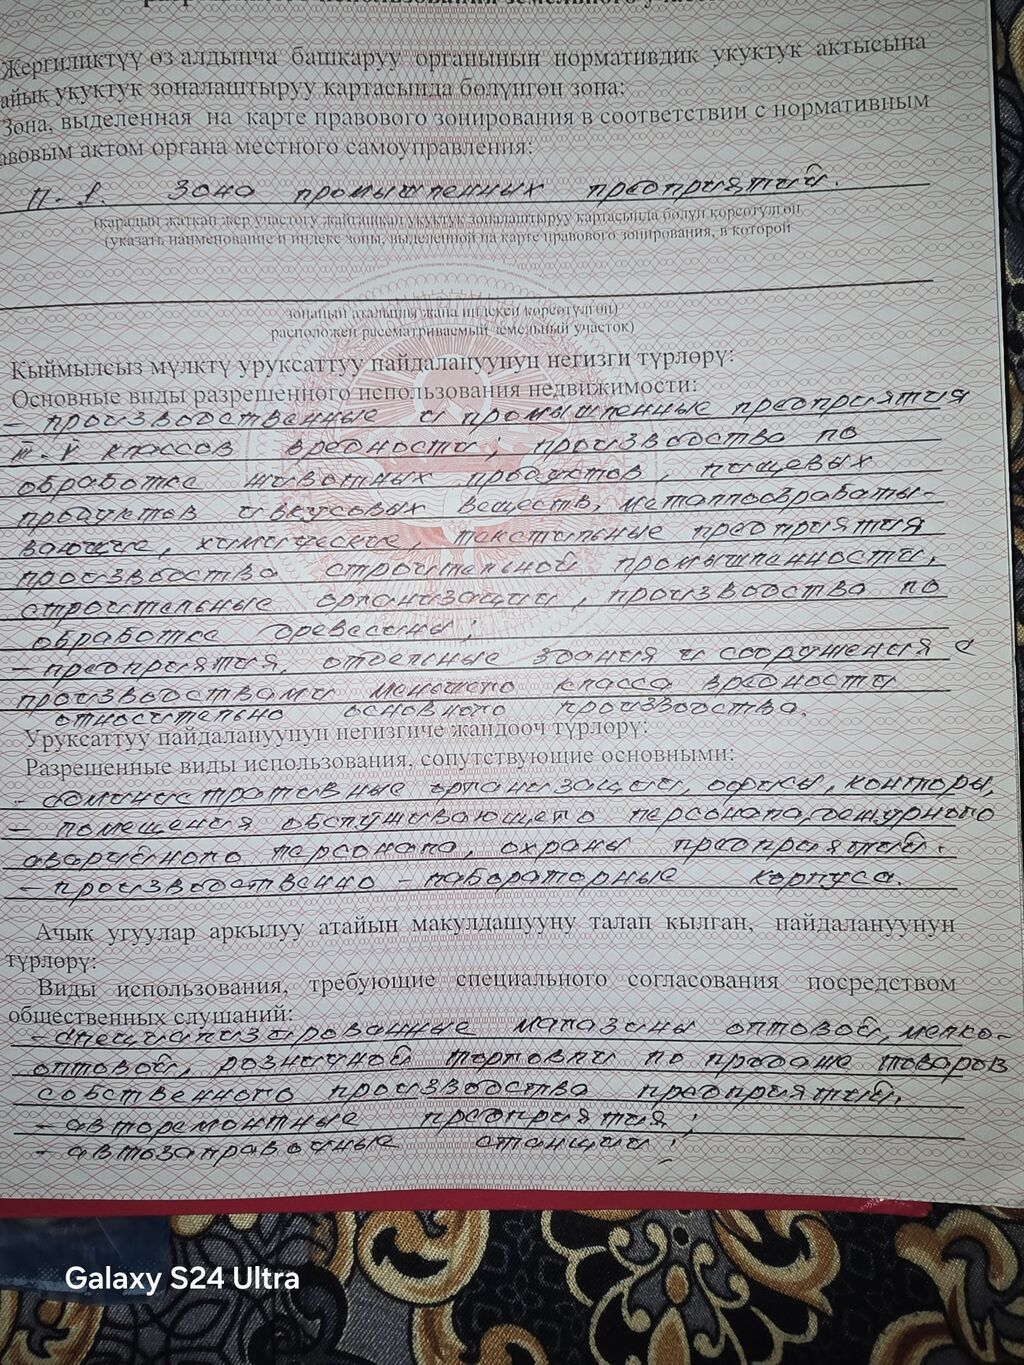 использования земельного
Жергиликтүү өз алдынча башкаруу органынын нормативдик укуктук актысына
айык укуктук зоналаштыруу картасында бөлүнгөн зона:
Зона, выделенная на карте правового зонирования в соответствии с нормативным
авовым актом органа местного самоуправления:
П-1. Зона промышленных предприятий.
(каралып жаткан жер участогу жайгашкан укуктук зоналаштыруу картасында бөлүп көрсөтүлгөн
(указать наименование и индекс зоны, выделенной на карте правового зонирования, в которой
зонанын аталышы жана индекси көрсөтүлгөн)
расположен рассматриваемый земельный участок)
Кыймылсыз мүлктү уруксаттуу пайдалануунун негизги түрлөрү:
Основные виды разрешенного использования недвижимости:
- производственные и промышленные предприятия
классов вредности; производства по
обработке животных продуктов, пищевых
продуктов и вкусовых веществ, металлообрабаты-
вающие, химические, текстильные предприятия
производства строительной промышленности,
строительные организации, производства по
обработке древесины;
- предприятия, отдельные здания и сооружения с
производствами меньшего класса вредности
относительно основного производства.
Уруксаттуу пайдалануунун негизгиче жандооч түрлөрү:
Разрешенные виды использования, сопутствующие основными:
- административные организации, офисы, конторы,
- помещения обслуживающего персонала, дежурного
аварийного персонала, охраны предприятий.
- производственно - лабораторные корпуса.
Ачык угуулар аркылуу атайын макулдашууну талап кылган, пайдалануунун
түрлөрү:
Виды использования, требующие специального согласования посредством
общественных слушаний:
- специализированные магазины оптовой, мелко-
оптовой, розничной торговли по продаже товаров
собственного производства предприятий,
- авторемонтные предприятия;
- автозаправочные станции;
Galaxy S24 Ultra